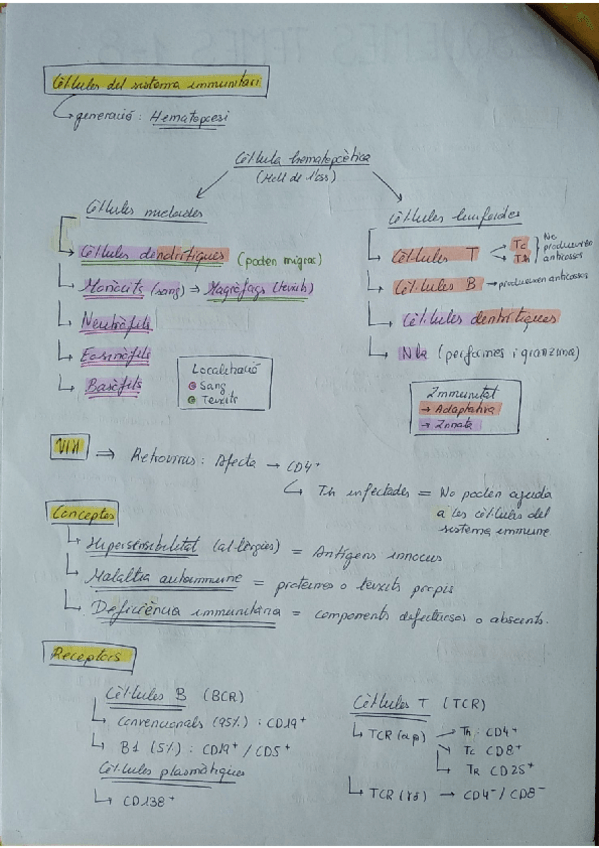 Cèl·lules del sistema immunitari
generació: Hematopoesi
Cèl·lula hematopoètica
(Moll de l'os)
Cèl·lules mieloides
Cèl·lules dendrítiques (poden migrar)
Monòcits (sang) ⇒ Macròfags (teixits)
Neutròfils
Eosinòfils
Basòfils
Localització
Sang
Teixits
Cèl·lules limfoides
Cèl·lules T → Tc
→ Th
No
produeixen
anticossos
Cèl·lules B → produeixen anticossos
Cèl·lules dentrítiques
Nk (perforines i granzima)
Immunitat
→ Adaptativa
→ Innata
VIH ⇒ Retrovirus: Afecta → CD4+
Th infectades = No poden ajuda
a les cèl·lules del
sistema immune
Conceptes
Hipersensibilitat (al·lèrgies) = Antígens innocus
Malaltia autoimmune = proteïnes o teixits propis
Deficiència immunitària = components defectuosos o absents.
Receptors
Cèl·lules B (BCR)
Convencionals (95%): CD19+
B1 (5%): CD19+ / CD5+
Cèl·lules plasmàtiques
CD138+
Cèl·lules T (TCR)
TCR (αβ) → Th: CD4+
Tc CD8+
TR CD25+
TCR (γδ) → CD4- / CD8-